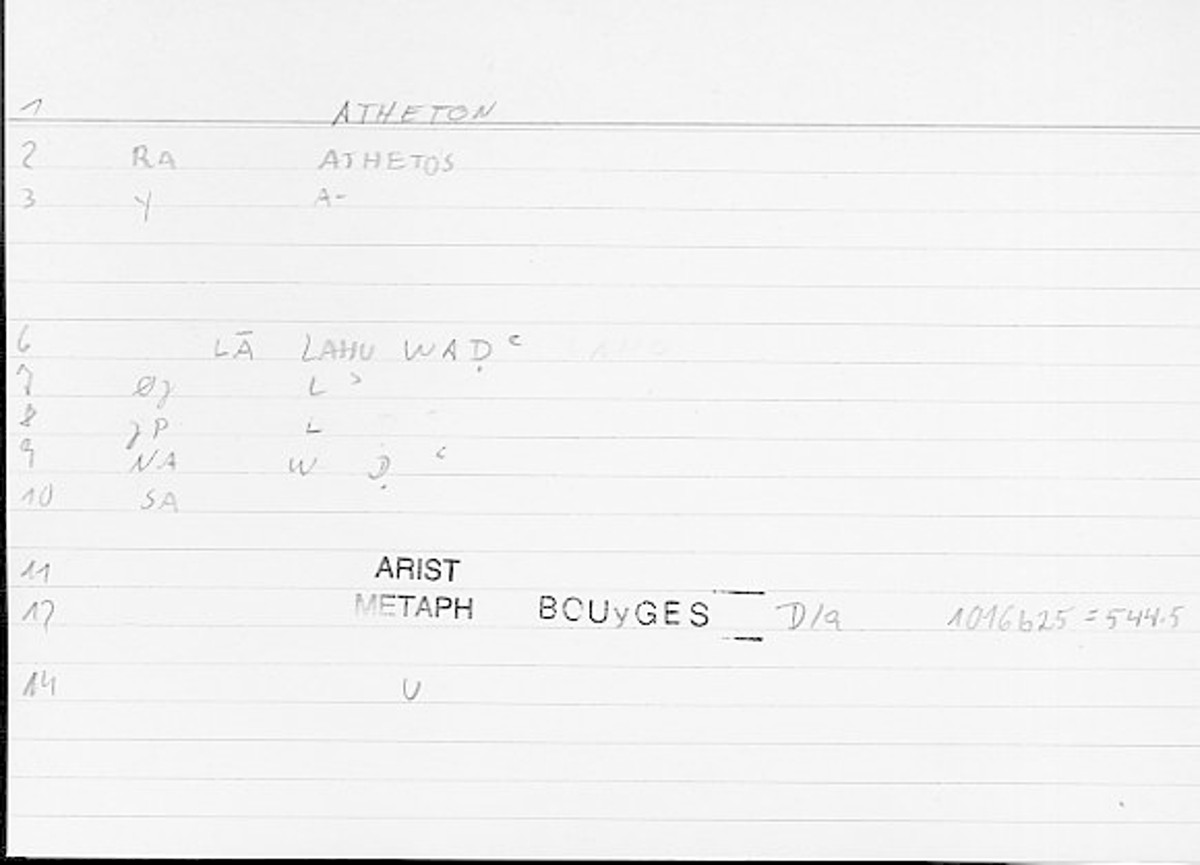 1 ATHETON
2 RA ATHETOS
3 Y A-
6 LĀ LAHU WAḌ ʿ
7 Øȝ L ʾ
8 ȝP L
9 NA W Ḍ ʿ
10 SA
11 ARIST
12 METAPH BOUyGES D/a 1016b25 = 544.5
14 U